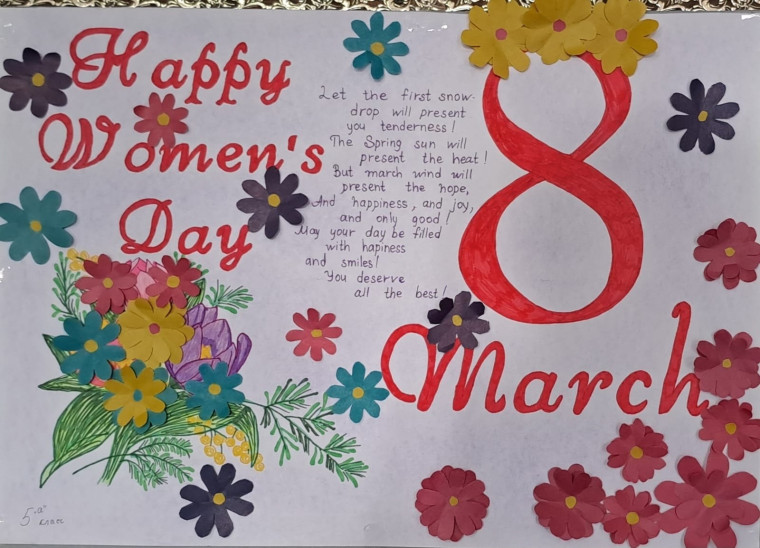 Happy
Women's
Day
Let the first snow-
drop will present
you tenderness!
The Spring sun will
present the heat!
But march wind will
present the hope,
And happiness, and joy,
and only good!
May your day be filled
with hapiness
and smiles!
You deserve
all the best!
8
March
5 "а"
класс